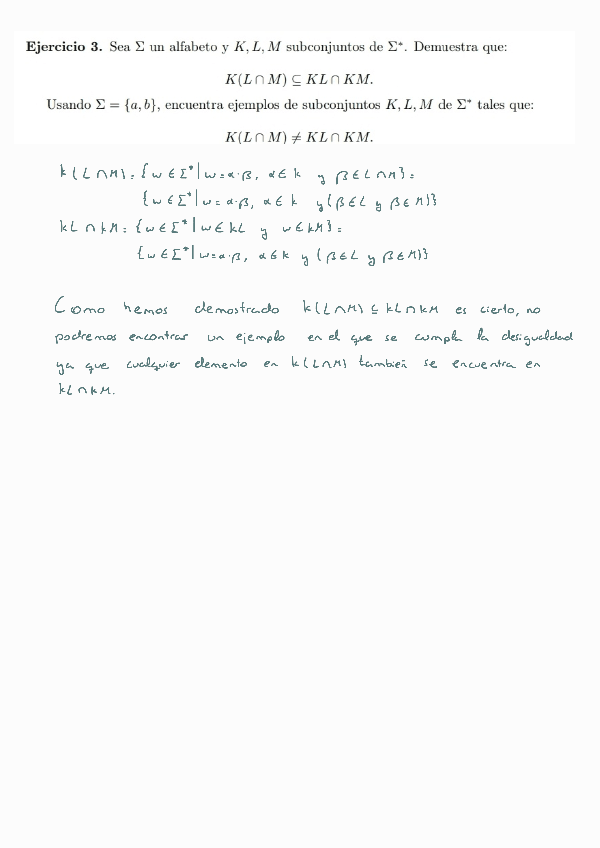 Ejercicio 3. Sea Σ un alfabeto y K, L, M subconjuntos de Σ*. Demuestra que:
K(L ∩ M) ⊆ KL ∩ KM.
Usando Σ = {a, b}, encuentra ejemplos de subconjuntos K, L, M de Σ* tales que:
K(L ∩ M) ≠ KL ∩ KM.
K(L∩M) = {w ∈ Σ* | w = α·β, α ∈ K y β ∈ L∩M} =
{w ∈ Σ* | w = α·β, α ∈ K y (β ∈ L y β ∈ M)}
KL ∩ KM = {w ∈ Σ* | w ∈ KL y w ∈ KM} =
{w ∈ Σ* | w = α·β, α ∈ K y (β ∈ L y β ∈ M)}
Como hemos demostrado K(L∩M) ⊆ KL∩KM es cierto, no
podremos encontrar un ejemplo en el que se cumpla la desigualdad
ya que cualquier elemento en K(L∩M) también se encuentra en
KL∩KM.